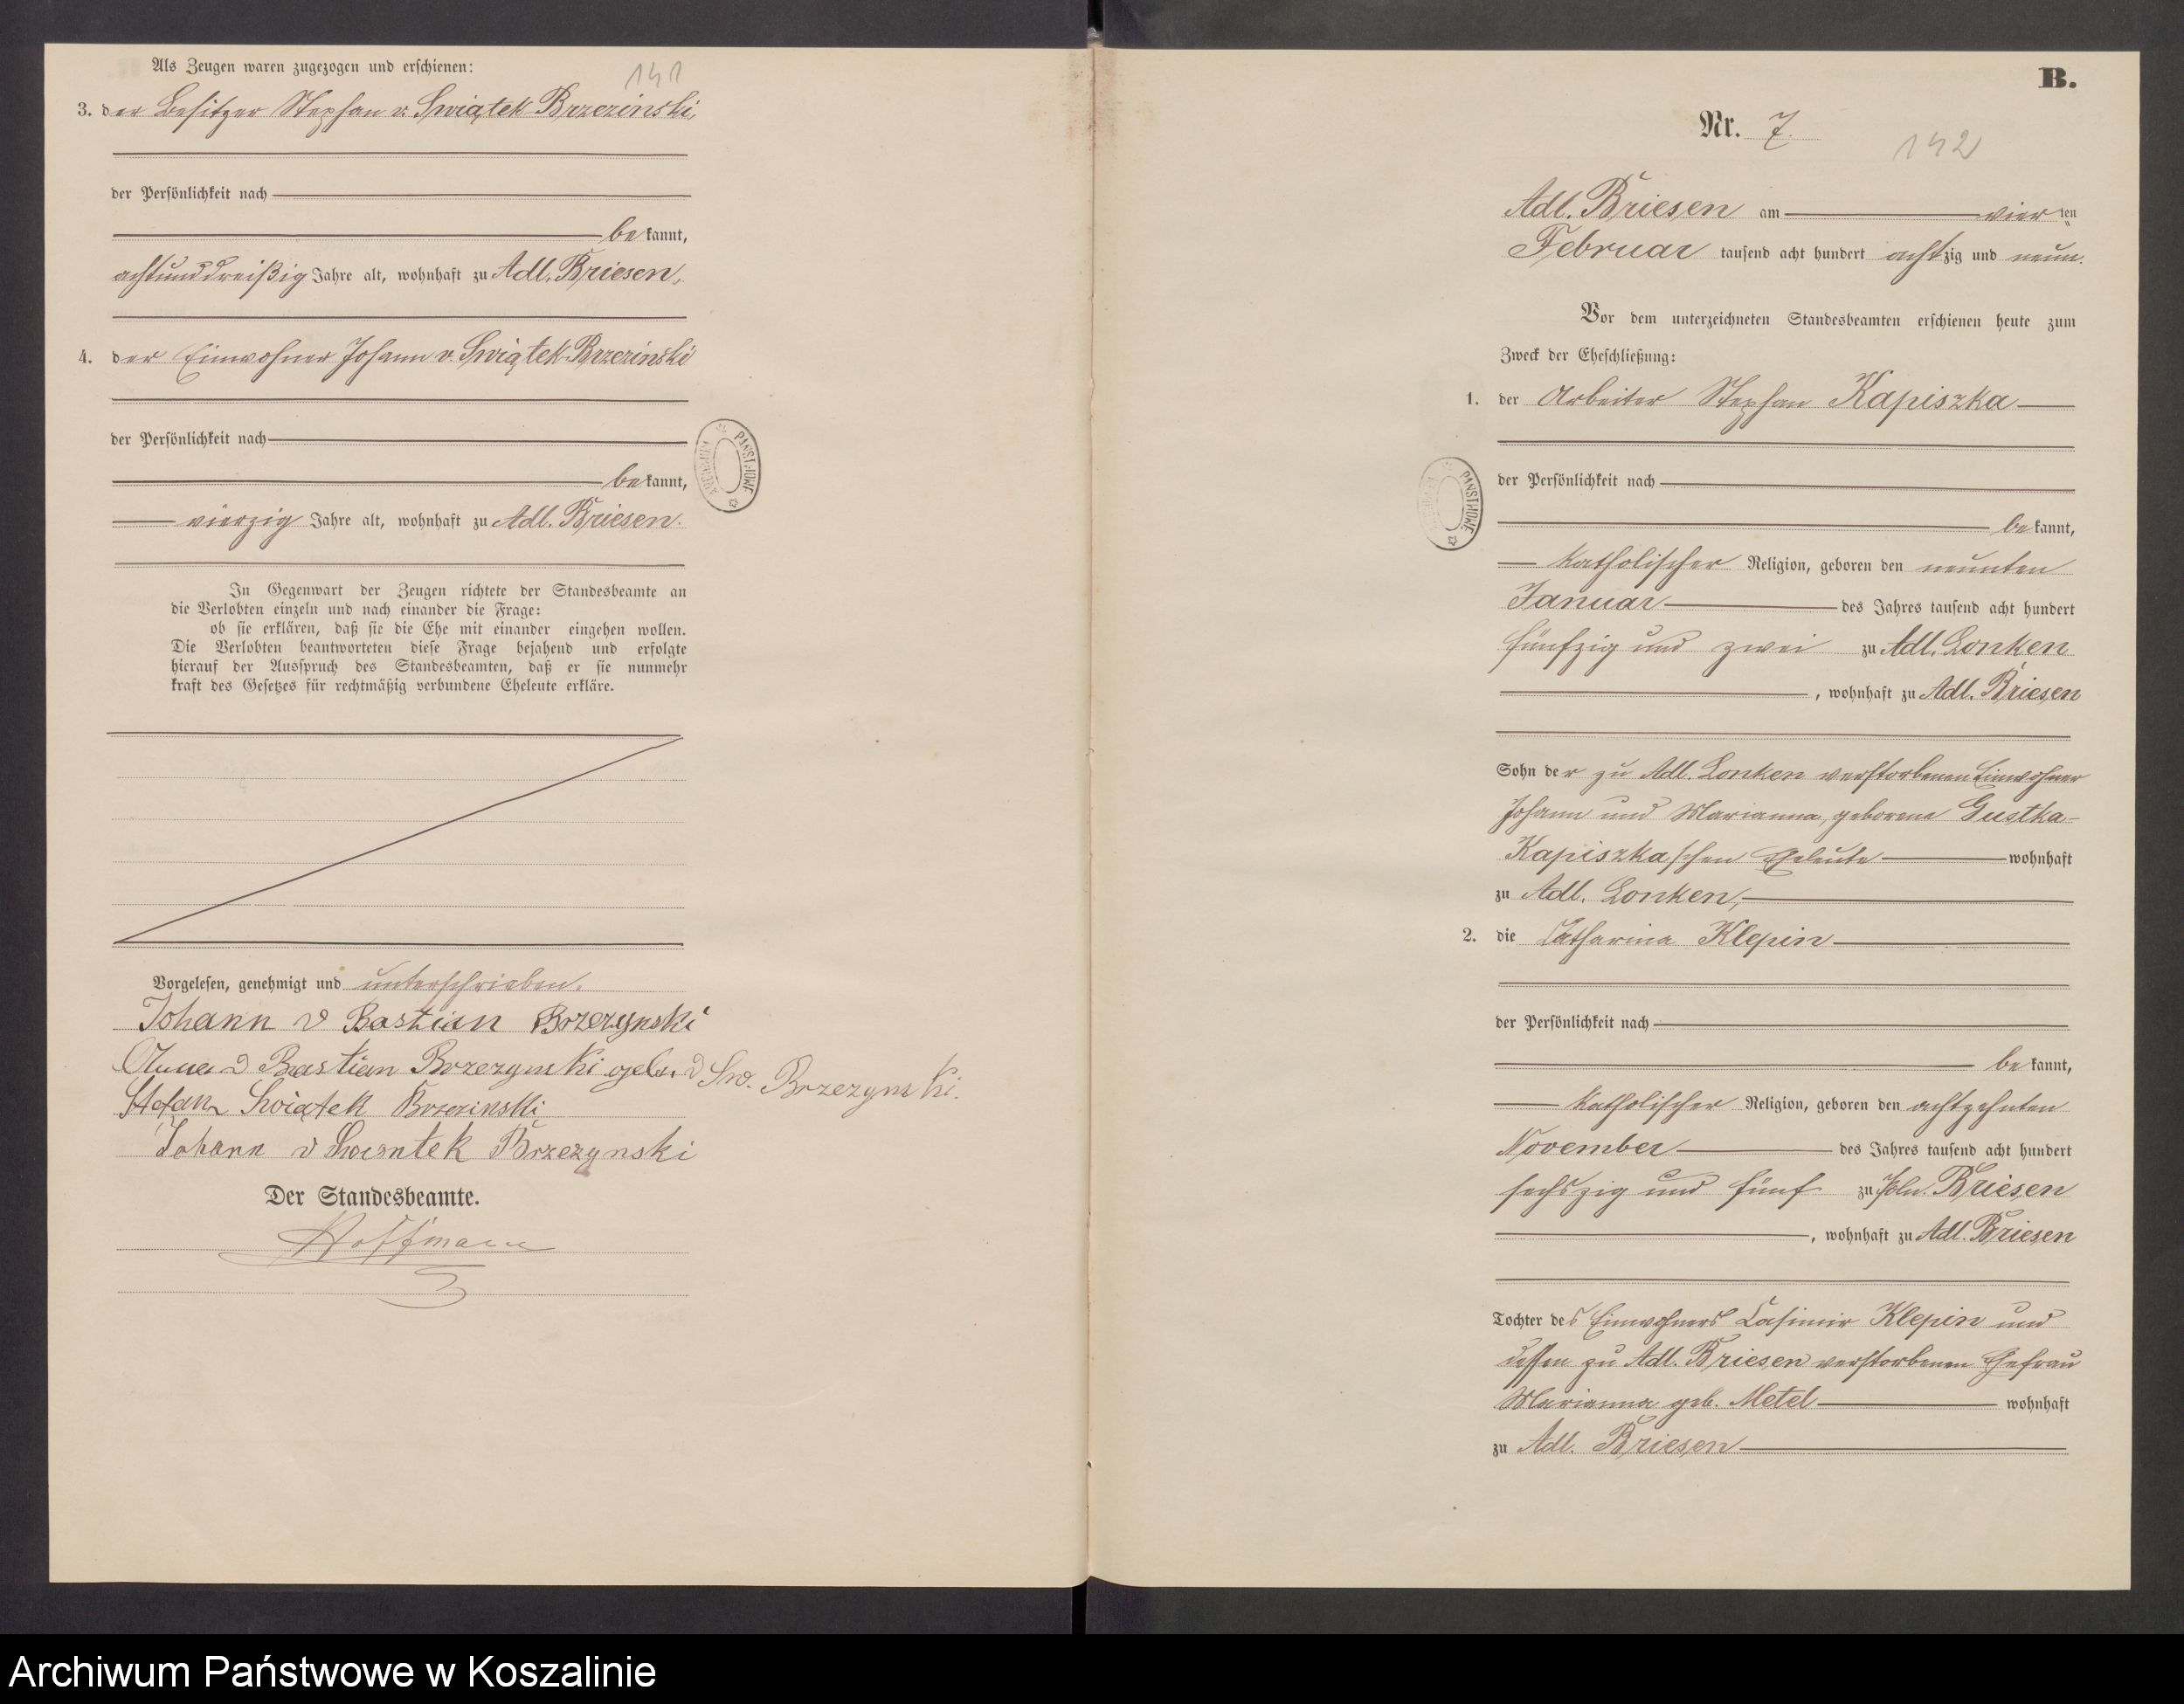 Als Zeugen waren zugezogen und erschienen:
141
3. der Besitzer Stephan v. Swiątek-Brzezinski,
der Persönlichkeit nach
bekannt,
achtunddreißig Jahre alt, wohnhaft zu Adl. Briesen,
4. der Einwohner Johann v. Swiątek-Brzezinski
der Persönlichkeit nach
bekannt,
vierzig Jahre alt, wohnhaft zu Adl. Briesen.
In Gegenwart der Zeugen richtete der Standesbeamte an
die Verlobten einzeln und nach einander die Frage:
ob sie erklären, daß sie die Ehe mit einander eingehen wollen.
Die Verlobten beantworteten diese Frage bejahend und erfolgte
hierauf der Ausspruch des Standesbeamten, daß er sie nunmehr
kraft des Gesetzes für rechtmäßig verbundene Eheleute erkläre.
Vorgelesen, genehmigt und unterschrieben.
Johann v Bastian Brzezynski
Anna v Bastian Brzezynski geb. v Sw. Brzezynski.
Stefan Swiątek Brzezinski
Johann v Swientek Brzezynski
Der Standesbeamte.
Hoffmann
PAŃSTWOWE
B.
Nr. 7.
142
Adl. Briesen am vierten
Februar tausend acht hundert achtzig und neun.
Vor dem unterzeichneten Standesbeamten erschienen heute zum
Zweck der Eheschließung:
1. der Arbeiter Stephan Kapiszka
der Persönlichkeit nach
bekannt,
katholischer Religion, geboren den neunten
Januar des Jahres tausend acht hundert
fünfzig und zwei zu Adl. Lonken
, wohnhaft zu Adl. Briesen
PAŃSTWOWE
Sohn der zu Adl. Lonken verstorbenen Einwohner
Johann und Marianna, geborene Gustka-
Kapiszkaschen Eheleute wohnhaft
zu Adl. Lonken,
2. die Catharina Klepin
der Persönlichkeit nach
bekannt,
katholischer Religion, geboren den achtzehnten
November des Jahres tausend acht hundert
sechszig und fünf zu Poln. Briesen
, wohnhaft zu Adl. Briesen
Tochter des Einwohners Casimir Klepin und
dessen zu Adl. Briesen verstorbenen Ehefrau
Marianna geb. Metel wohnhaft
zu Adl. Briesen
Archiwum Państwowe w Koszalinie